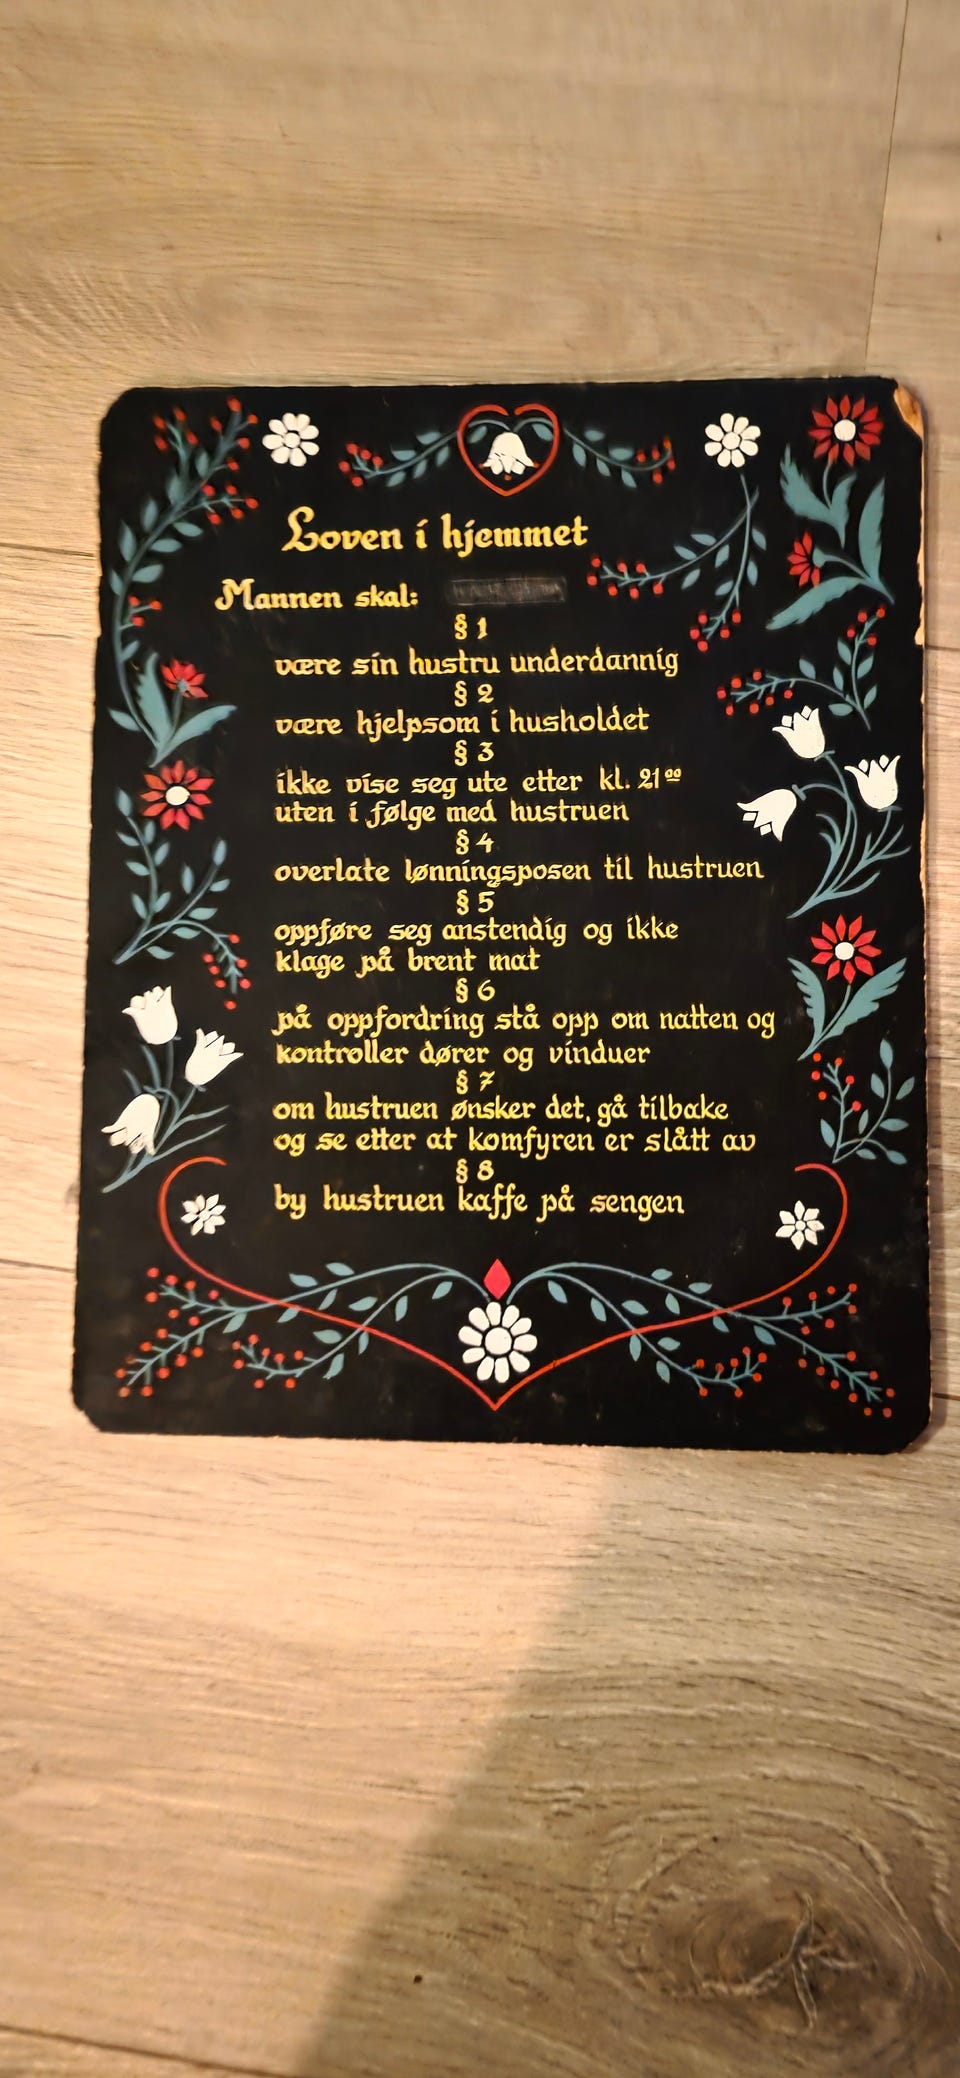 Loven i hjemmet
Mannen skal:
§ 1
være sin hustru underdannig
§ 2
være hjelpsom i husholdet
§ 3
ikke vise seg ute etter kl. 21⁰⁰
uten i følge med hustruen
§ 4
overlate lønningsposen til hustruen
§ 5
oppføre seg anstendig og ikke
klage på brent mat
§ 6
på oppfordring stå opp om natten og
kontroller dører og vinduer
§ 7
om hustruen ønsker det, gå tilbake
og se etter at komfyren er slått av
§ 8
by hustruen kaffe på sengen